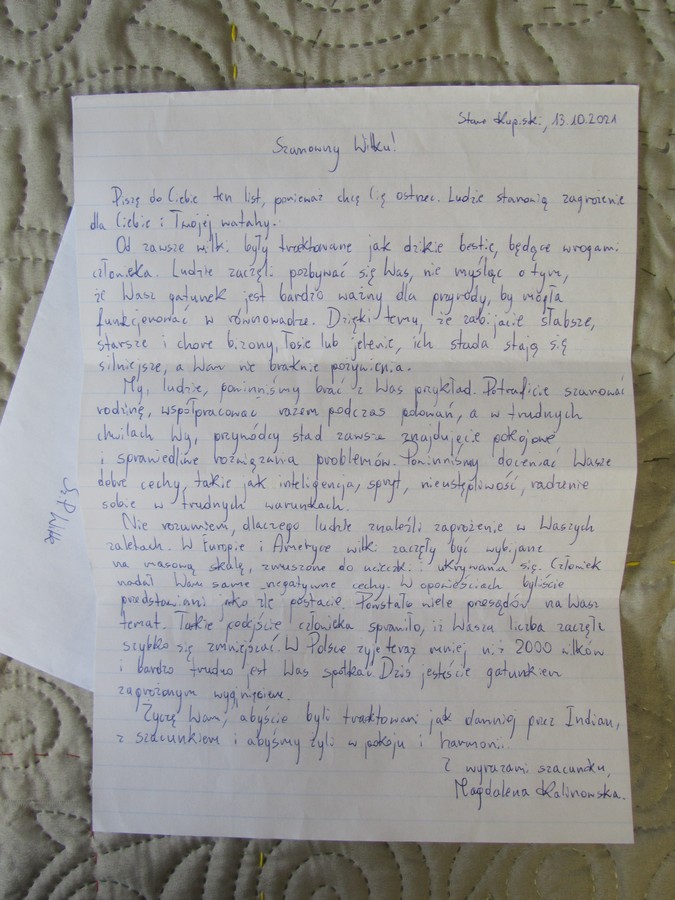 Stare Kupiski, 13.10.2021
Szanowny Wilku!
Piszę do Ciebie ten list, ponieważ chcę Cię ostrzec. Ludzie stanowią zagrożenie
dla Ciebie i Twojej watahy.
Od zawsze wilki były traktowane jak dzikie bestie, będące wrogami
człowieka. Ludzie zaczęli pozbywać się Was, nie myśląc o tym,
że Wasz gatunek jest bardzo ważny dla przyrody, by mogła
funkcjonować w równowadze. Dzięki temu, że zabijacie słabsze,
starsze i chore bizony, łosie lub jelenie, ich stada stają się
silniejsze, a Wam nie braknie pożywienia.
My, ludzie, powinniśmy brać z Was przykład. Potraficie szanować
rodzinę, współpracować razem podczas polowań, a w trudnych
chwilach Wy, przywódcy stad zawsze znajdujecie pokojowe
i sprawiedliwe rozwiązania problemów. Powinniśmy doceniać Wasze
dobre cechy, takie jak inteligencja, spryt, nieustępliwość, radzenie
sobie w trudnych warunkach.
Nie rozumiem, dlaczego ludzie znaleźli zagrożenie w Waszych
zaletach. W Europie i Ameryce wilki zaczęły być wybijane
na masową skalę, zmuszone do ucieczki i ukrywania się. Człowiek
nadał Wam same negatywne cechy. W opowieściach byliście
przedstawiani jako złe postacie. Powstało wiele przesądów na Wasz
temat. Takie podejście człowieka sprawiło, iż Wasza liczba zaczęła
szybko się zmniejszać. W Polsce żyje teraz mniej niż 2000 wilków
i bardzo trudno jest Was spotkać. Dziś jesteście gatunkiem
zagrożonym wyginięciem.
Życzę Wam, abyście byli traktowani jak dawniej przez Indian,
z szacunkiem i abyśmy żyli w pokoju i harmonii.
Z wyrazami szacunku,
Magdalena Kalinowska.
Sz. P. Wilk